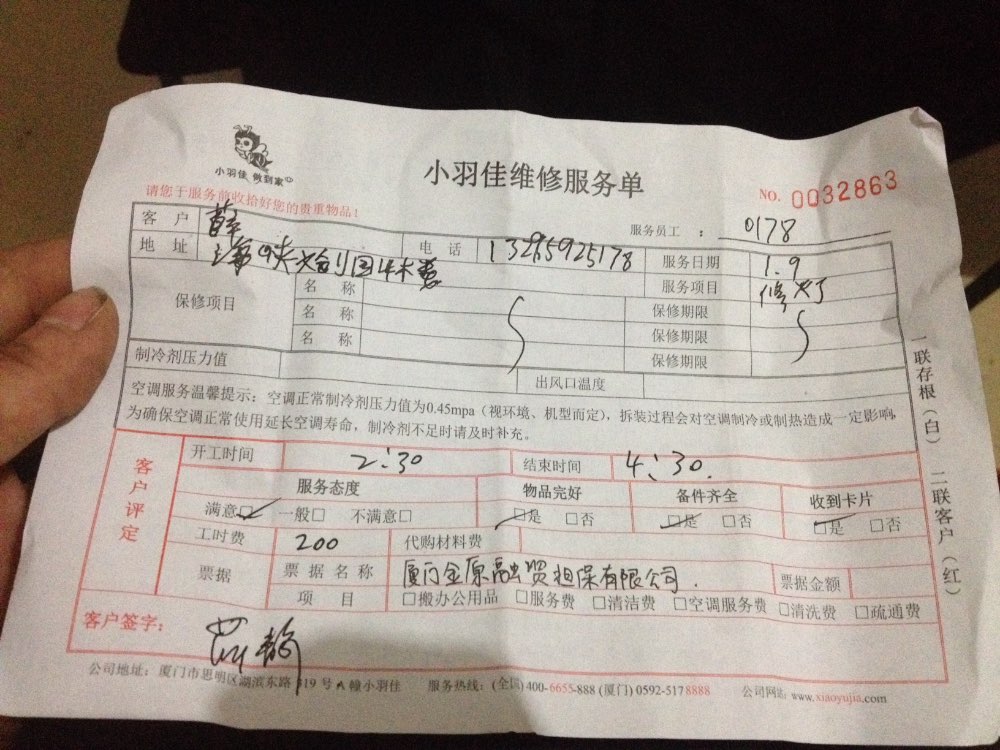 小羽佳 做到家
小羽佳维修服务单
NO. 0032863
请您于服务前收拾好您的贵重物品！
服务员工 ： 0178
客 户 薛
地 址 电 话 13285925178 服务日期 1.9
服务项目 修灯
保修项目 名 称 保修期限
名 称 保修期限
名 称 保修期限
制冷剂压力值 出风口温度
空调服务温馨提示：空调正常制冷剂压力值为0.45mpa（视环境、机型而定），拆装过程会对空调制冷或制热造成一定影响，
为确保空调正常使用延长空调寿命，制冷剂不足时请及时补充。
客户评定
开工时间 2:30 结束时间 4:30.
服务态度 物品完好 备件齐全 收到卡片
满意□ 一般□ 不满意□ □是 □否 □是 □否 □是 □否
工时费 200 代购材料费
票据 票据名称 厦门金原融资担保有限公司. 票据金额
项 目 □搬办公用品 □服务费 □清洁费 □空调服务费 □清洗费 □疏通费
客户签字：
公司地址：厦门市思明区湖滨东路319号A幢小羽佳 服务热线：(全国)400-6655-888 (厦门) 0592-5178888 公司网站：www.xiaoyujia.com
一联存根（白） 二联客户（红）